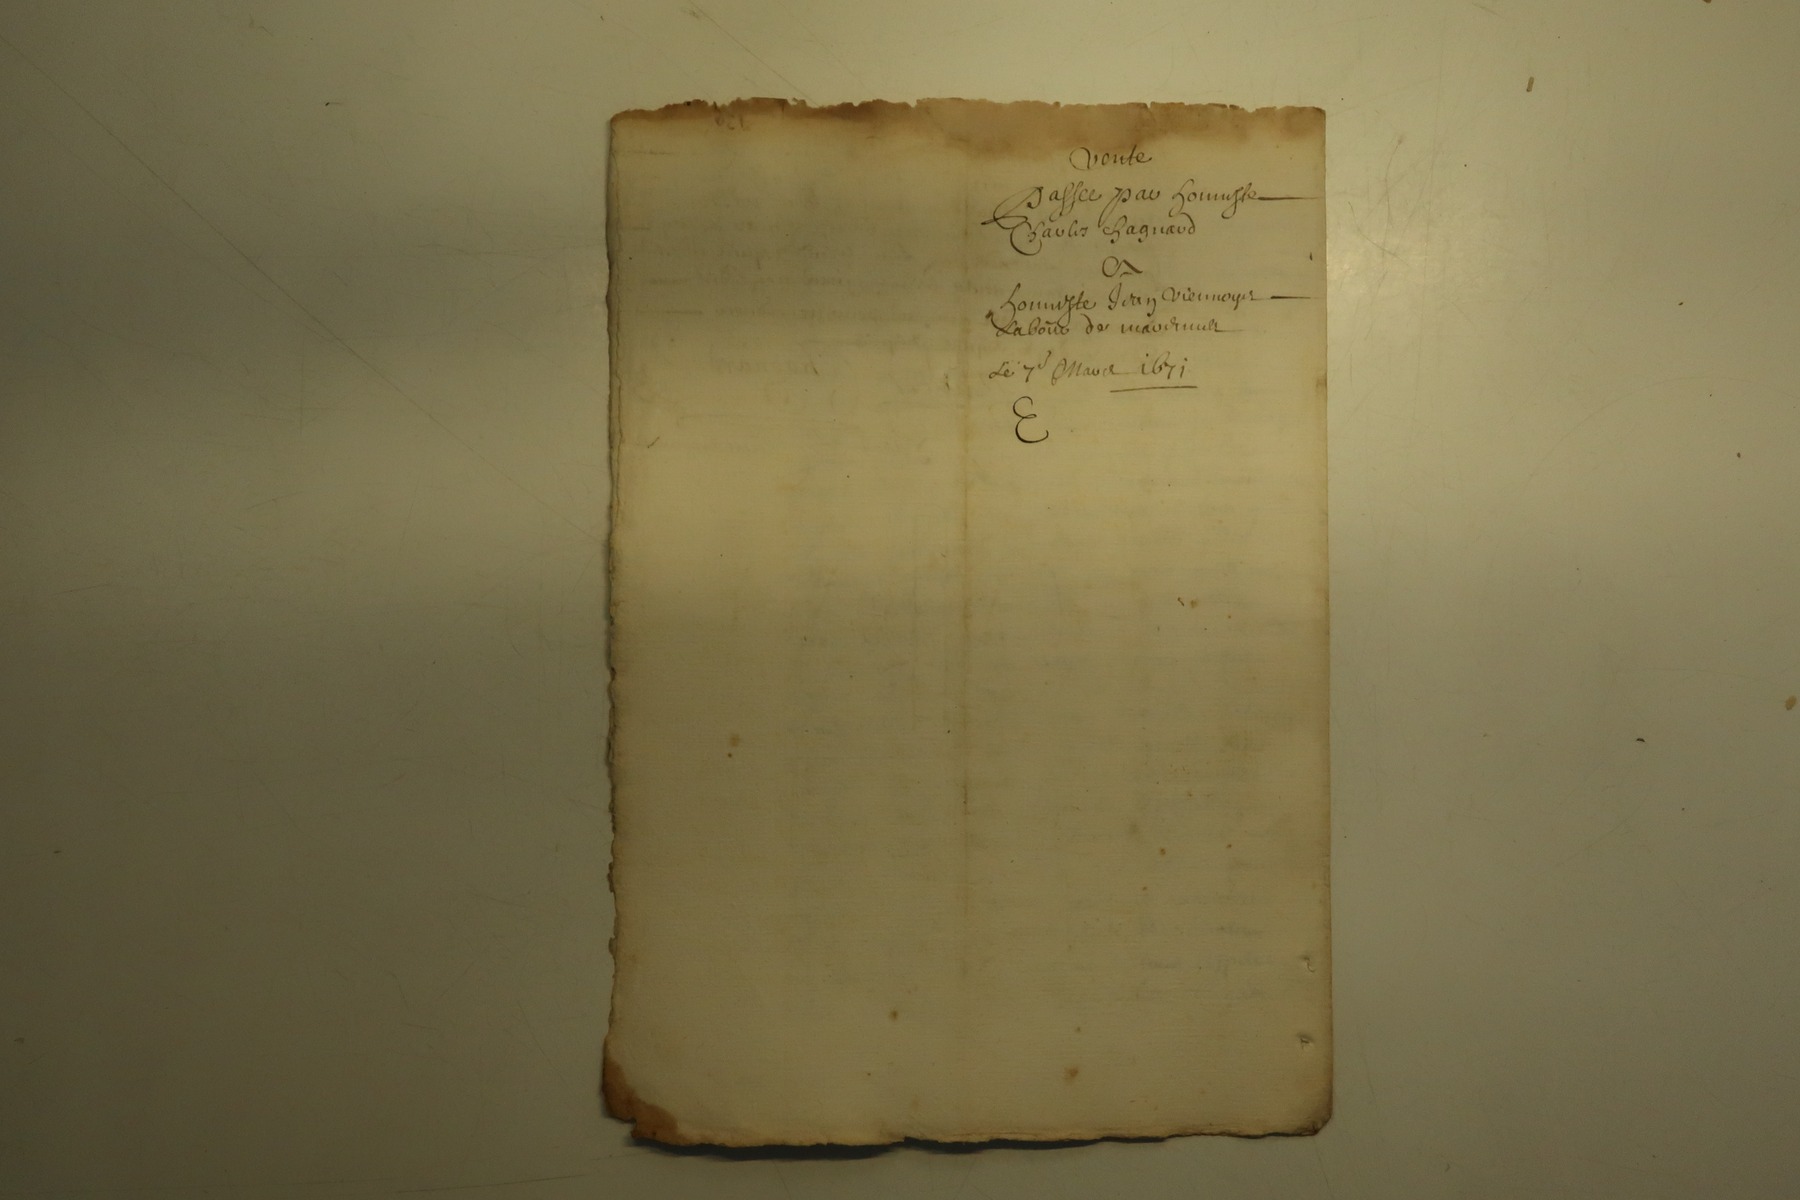 Vente
Passee par honneste
Charles Chagnard
A
honneste Jean Viennoys
Labour de
Le 7e Mars 1671